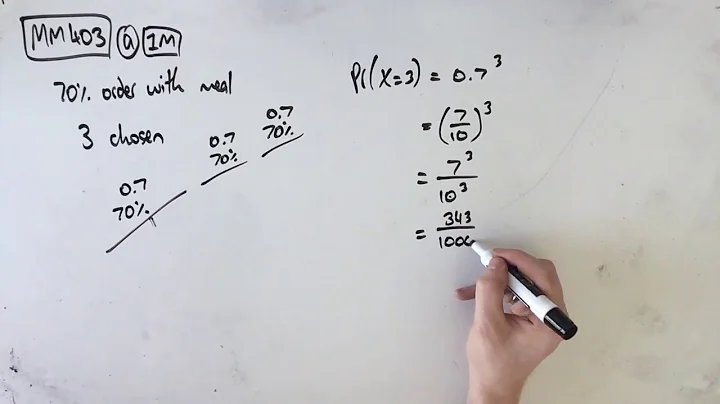 MM403 a 1M
70% order with meal
3 chosen
0.7
70%
0.7
70%
0.7
70%
Pr(X=3) = 0.7³
= (7/10)³
= 7³/10³
= 343/1000